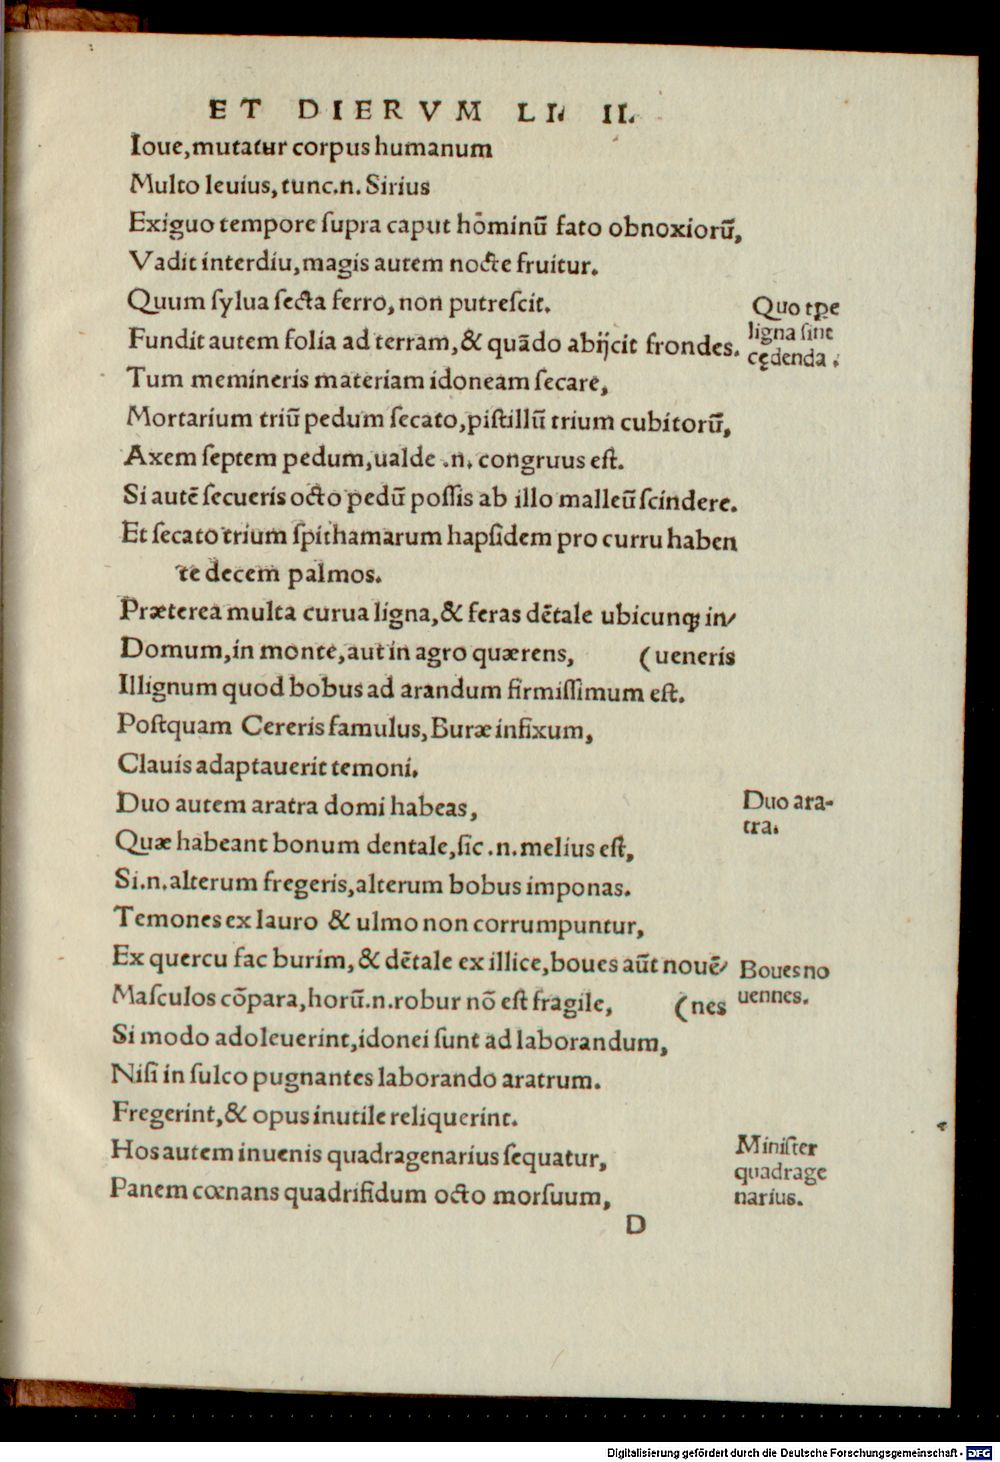 ET DIERVM LI. II.
Ioue,mutatur corpus humanum
Multo leuius, tunc.n. Sirius
Exiguo tempore ſupra caput hōminū fato obnoxiorū,
Vadit interdiu,magis autem nocte fruitur.
Quum ſylua ſecta ferro, non putreſcit.
Quo tꝑe
Fundit autem folia ad terram,& quādo abijcit frondes.
ligna ſint
cędenda.
Tum memineris materiam idoneam ſecare,
Mortarium triū pedum ſecato,piſtillū trium cubitorū,
Axem ſeptem pedum,ualde .n. congruus eſt.
Si autē ſecueris octo pedū poſſis ab illo malleū ſcindere.
Et ſecato trium ſpithamarum hapſidem pro curru haben
te decem palmos.
Præterea multa curua ligna,& feras dētale ubicunqȝ in/
Domum,in monte,aut in agro quærens, (ueneris
Illignum quod bobus ad arandum firmiſſimum eſt.
Poſtquam Cereris famulus,Buræ infixum,
Clauis adaptauerit temoni.
Duo autem aratra domi habeas,
Duo ara-
tra.
Quæ habeant bonum dentale,ſic .n.melius eſt,
Si.n.alterum fregeris,alterum bobus imponas.
Temones ex lauro & ulmo non corrumpuntur,
Ex quercu fac burim,& dētale ex illice,boues aūt nouē/
Boues no
uennes.
Maſculos cōpara,horū.n.robur nō eſt fragile, (nes
Si modo adoleuerint,idonei ſunt ad laborandum,
Niſi in ſulco pugnantes laborando aratrum.
Fregerint,& opus inutile reliquerint.
Hos autem inuenis quadragenarius ſequatur,
Miniſter
quadrage
narius.
Panem cœnans quadrifidum octo morſuum,
D
Digitalisierung gefördert durch die Deutsche Forschungsgemeinschaft - DFG